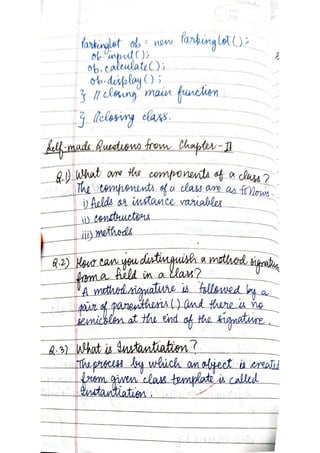 ParkingLot ob = new ParkingLot();
ob.input();
ob.calculate();
ob.display();
} // closing main function
} // closing class.
Self-made Questions from Chapter - II
Q.1) What are the components of a class?
The components of a class are as follows -
i) fields or instance variables
ii) constructors
iii) methods
Q.2) How can you distinguish a method signature
from a field in a class?
A method signature is followed by a
pair of parenthesis () and there is no
semicolon at the end of the signature.
Q.3) What is Instantiation?
The process by which an object is created
from given class template is called
Instantiation.